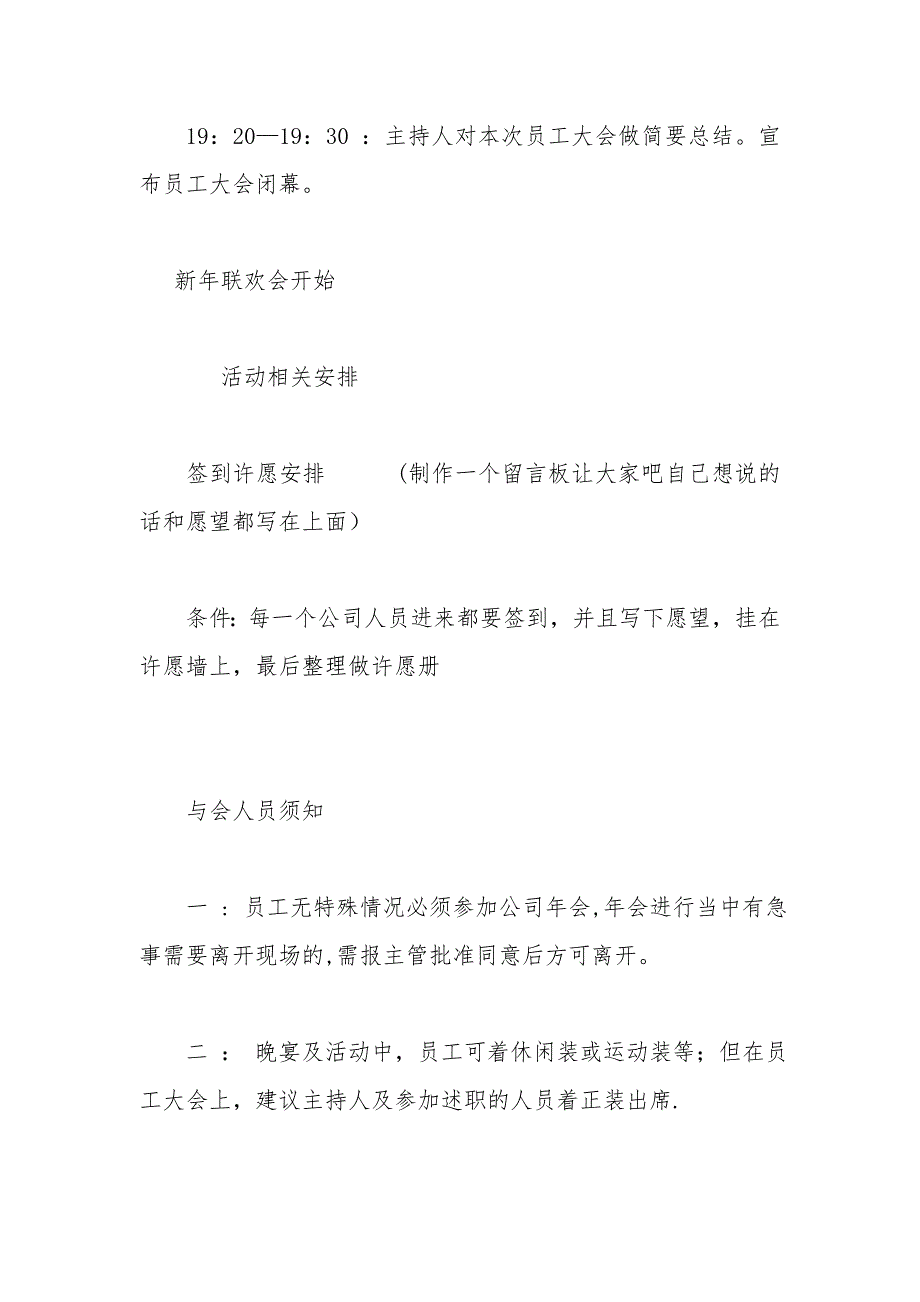 19：20—19：30 ：主持人对本次员工大会做简要总结。宣
布员工大会闭幕。
新年联欢会开始
活动相关安排
签到许愿安排 (制作一个留言板让大家吧自己想说的
话和愿望都写在上面）
条件：每一个公司人员进来都要签到，并且写下愿望，挂在
许愿墙上，最后整理做许愿册
与会人员须知
一 : 员工无特殊情况必须参加公司年会,年会进行当中有急
事需要离开现场的,需报主管批准同意后方可离开。
二 ： 晚宴及活动中，员工可着休闲装或运动装等；但在员
工大会上，建议主持人及参加述职的人员着正装出席.